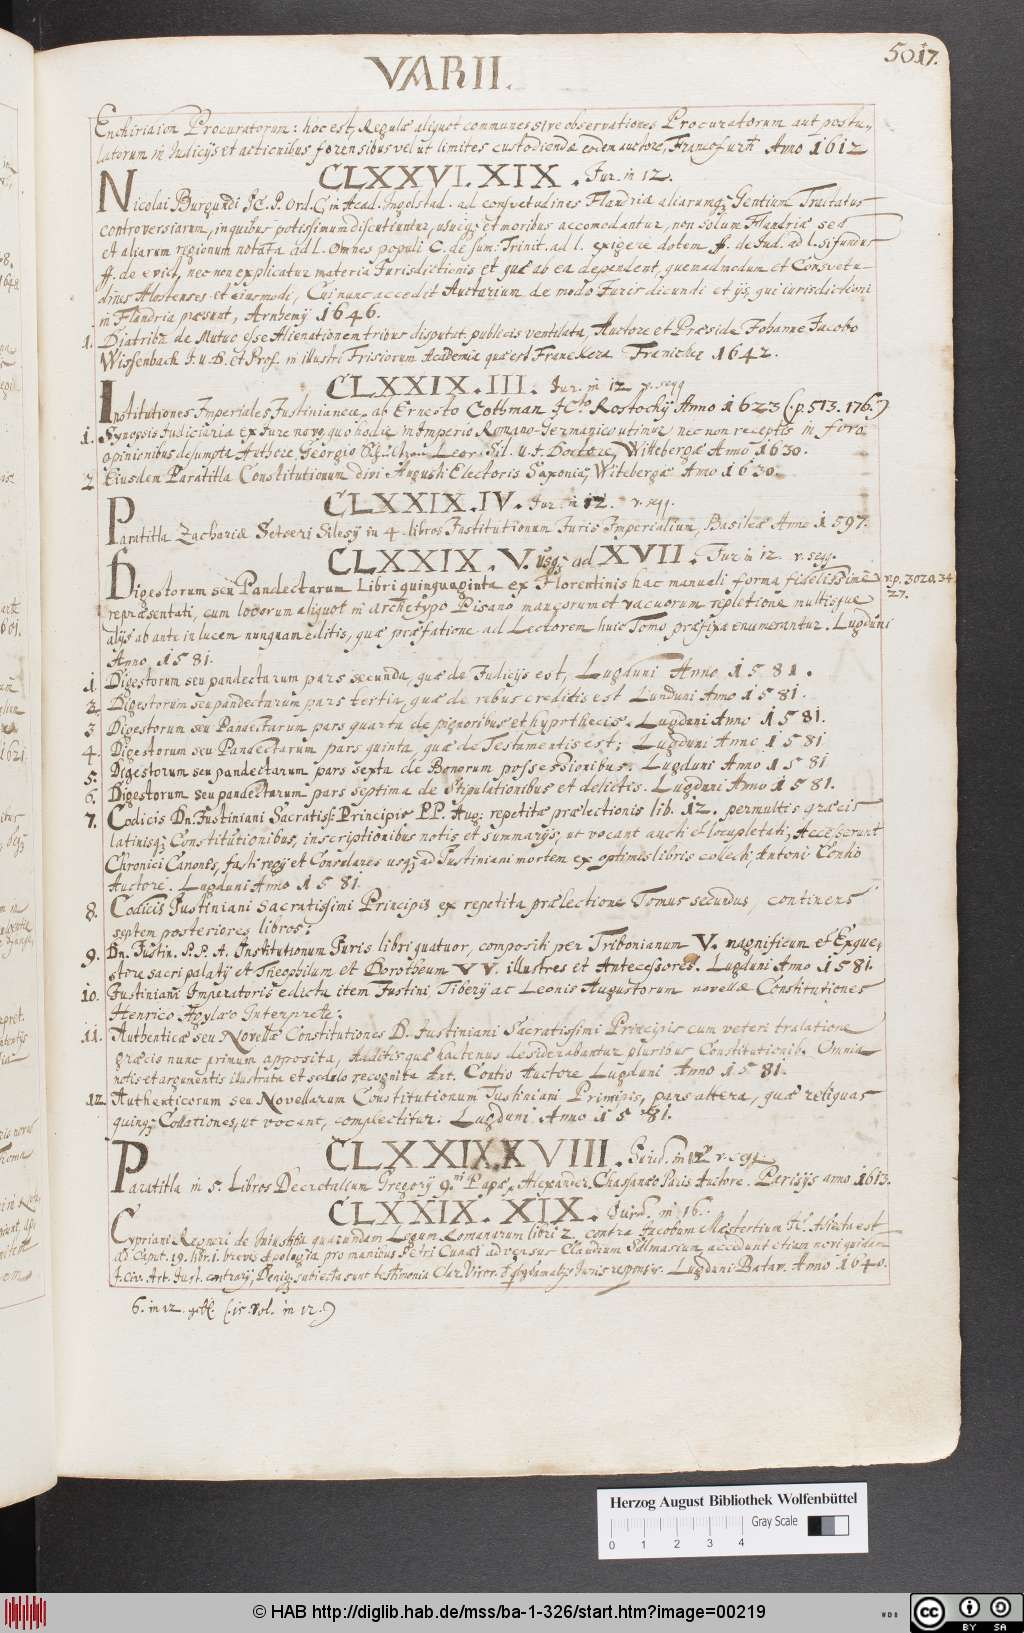 VARII.
5017.
Enchiridion Procuratorum: hoc est, Regulæ aliquot communes sive observationes Procuratorum aut postu,,
latorum in Iudicijs et actionibus forensibus vel ut limites custodiendæ eodem auctore, Francofurti Anno 1612
CLXXVI. XIX. Jur. in 12.
Nicolai Burgundi JC. P. Ord. C. in Acad. Ingolstad. ad consvetudines Flandriæ aliarumq; Gentium Tractatus
controversiarum, in quibus potissimum discutiuntur, usuiq; et moribus accomodantur, non solum Flandriæ sed
et aliarum regionum notata ad L. Omnes populi C. de sum: Trinit. ad l. exigere dotem ff. de Iud. ad l. si fundus
ff. de evict, nec non explicatur materia Jurisdictionis et quæ ab ea dependent, quemadmodum et Consvetu-
dines Alostenses et eiusmodi, Cui nunc accedit Auctarium de modo Juris dicundi et ijs, qui iurisdictioni
in Flandria præsunt, Arnhemij 1646.
1. Diatribæ de Mutuo esse Alienationem tribus disputat. publicis ventilata, Auctore et Præside Johanne Jacobo
Wissenbach J. U. D. et Prof. in illustri Frisiorum Academia quæ est Franekeræ Franicker 1642.
CLXXIX. III. Jur. in 12 v. seqq
Institutiones Imperiales Justinianeæ, ab Ernesto Cothman JCto Rostochij Anno 1623 (. p. 513. 176.)
1. Synopsis Iudiciaria ex Jure novo, quo hodie in Imperio Romano-Germanico utimur, nec non receptis in foro
opinionibus desumpta Authore Georgio Leor. Sil. U. J. Doctore, Wittebergæ Anno 1630.
2 Eiusdem Paratitla Constitutionum divi Augusti Electoris Saxoniæ, Witebergæ Anno 1630.
CLXXIX. IV. Jur. in 12. v. seqq.
Paratitla Zachariæ Setseri Silesij in 4. libros Institutionum Juris Imperialium, Basileæ Anno 1597.
CLXXIX. V. usq; ad XVII. Jur in 12 v. seqq.
Digestorum seu Pandectarum Libri quinquaginta ex Florentinis hac manuali forma fidelissimè
v. p. 3020. 34
27.
repræsentati, cum locorum aliquot in archetypo Pisano mancorum et vacuorum repletione multisque
alijs ab ante in lucem nunquam editis, quæ præfatione ad Lectorem huic Tomo præfixa enumerantur. Lugduni
Anno 1581.
1. Digestorum seu pandectarum pars secunda, quæ de Judicijs est, Lugduni Anno 1581.
2. Digestorum seu pandectarum pars tertia, quæ de rebus creditis est Lunduni Anno 1581.
3 Digestorum seu Pandectarum pars quarta de pignoribus et hypothecis. Lugduni Anno 1581.
4. Digestorum seu Pandectarum pars quinta, quæ de Testamentis est; Lugduni Anno 1581
5. Digestorum seu pandectarum pars sexta de Bonorum possessionibus. Lugduni Anno 1581
6. Digestorum seu pandectarum pars septima de Stipulationibus et delictis. Lugduni Anno 1581.
7. Codicis Dn. Justiniani Sacratiss: Principis PP. Aug: repetitæ prælectionis lib. 12. permultis græcis
latinisq; Constitutionibus, inscriptionibus notis et summarijs, ut vocant aucti et locupletati, Accesserunt
Chronici Canones, fasti regij et Consulares usq; ad Justiniani mortem ex optimis libris collecti, Antoni Contio
Auctore. Lugduni Anno 1581.
8. Codicis Justiniani sacratissimi Principis ex repetita prælectione Tomus secundus, continens
septem posteriores libros;
9. Dn. Justin. P. P. A. Institutionum Juris libri quatuor, compositi per Tribonianum V. magnificum et Exque,,
store sacri palatij et Theophilum et Dorotheum VV. illustres et Antecessores. Lugduni Anno 1581.
10. Justiniani Imperatoris edicta item Justini, Tiberij ac Leonis Augustorum novellæ Constitutiones
Henrico Agylæo Interprete;
11. Authenticæ seu Novellæ Constitutiones D. Justiniani Sacratissimi Principis cum veteri tralatione
græcis nunc primum apposita, Additis quæ hactenus desiderabantur pluribus Constitutionib. Omnia
notis et argumentis illustrata et sedulo recognita Ant. Contio Auctore Lugduni Anno 1581.
12 Authenticorum seu Novellarum Constitutionum Justiniani Principis, pars altera, quæ reliquas
quinq; Collationes, ut vocant, complectitur. Lugduni Anno 1581.
CLXXIX. XVIII. Jurid. in 12 v. seqq.
Paratitla in 5. Libros Decretalium Gregorij 9ni Papæ, Alexander. Chassanæo Paris Auctore. Parisijs anno 1613.
CLXXIX. XIX. Jurid. in 16.
Cypriani Regneri de Iniustitia quarundam Legum Romanarum libri 2. contra Jacobum Mæstertium JC. Adiecta est
ad Caput. 19. libr. 1. brevis Apologia pro manibus Petri Cunæi adversus Claudium Salmasium, accedunt etiam novi quidam
J. Civ. Art. Just. contrarij, Deniq; subiecta sunt testimonia Clar. Viror. Lugduni Batav. Anno 1640.
6. in 12. (. 15. Vol. in 12.)
Herzog August Bibliothek Wolfenbüttel
Gray Scale
0 1 2 3 4
© HAB http://diglib.hab.de/mss/ba-1-326/start.htm?image=00219
WDB
cc BY SA